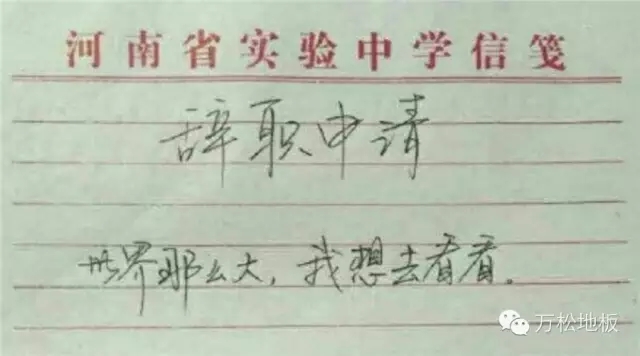 河南省实验中学信笺
辞职申请
世界那么大，我想去看看。
万松地板